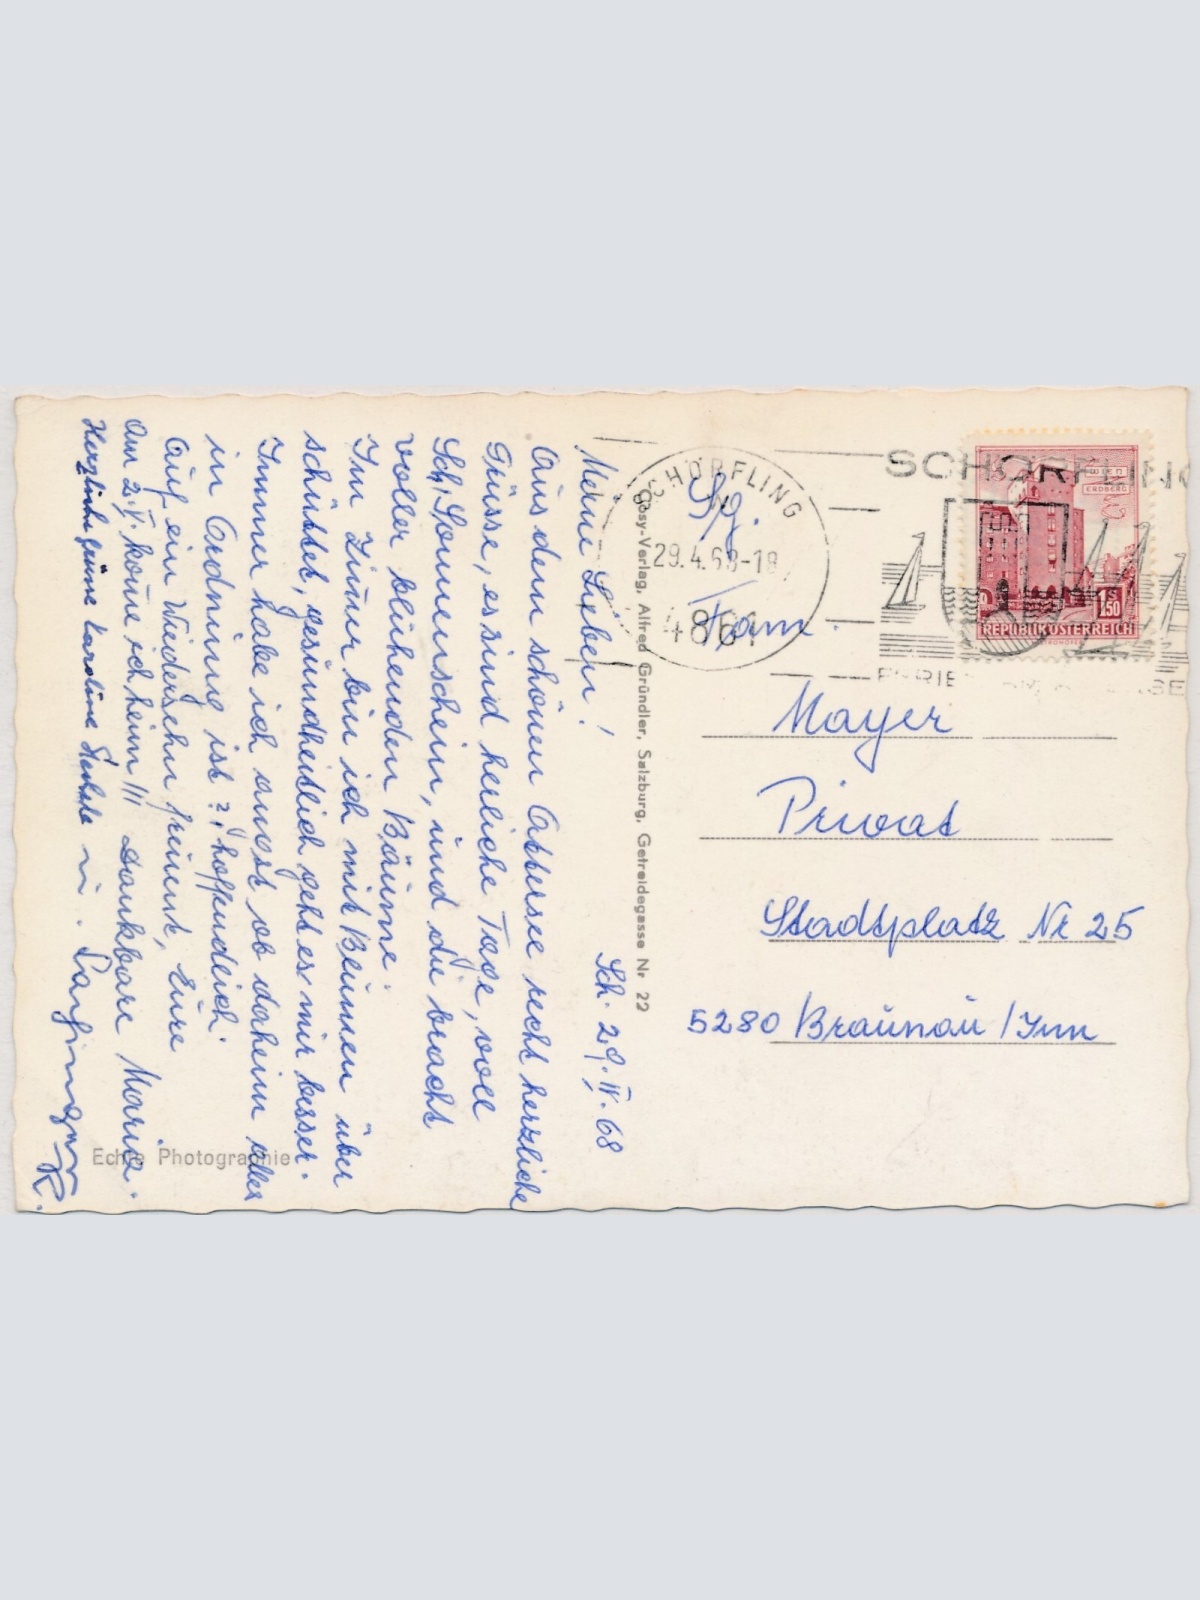 Sch. 29.IV.68
Meine Lieben!
Aus dem schönen Attersee recht herzliche
Grüsse, es sind herliche Tage, voll
Sch, Sonnenschein, und die bracht
voller blühenden Bäume.
Im Zimmer bin ich mit Blumen über
schüttet, gesundheitlich geht es mir besser.
Immer habe ich angst ob daheim alles
in Ordnung ist?, hoffendlich.
Auf ein Wiedersehn freuent, Eure
Am 2.V. kome ich heim!!! dankbare Maria.
Herzliche Grüsse Karoline
Echte Photographie
Cosy-Verlag, Alfred Gründler, Salzburg, Getreidegasse Nr 22
SCHÖRFLING
29.4.68-18
4861
SCHÖRFLING
WIEN
ERDBERG
1.50
S
REPUBLIK ÖSTERREICH
Sg.
Fam.
Mayer
Privat
Stadtplatz Nr 25
5280 Braunau/Inn